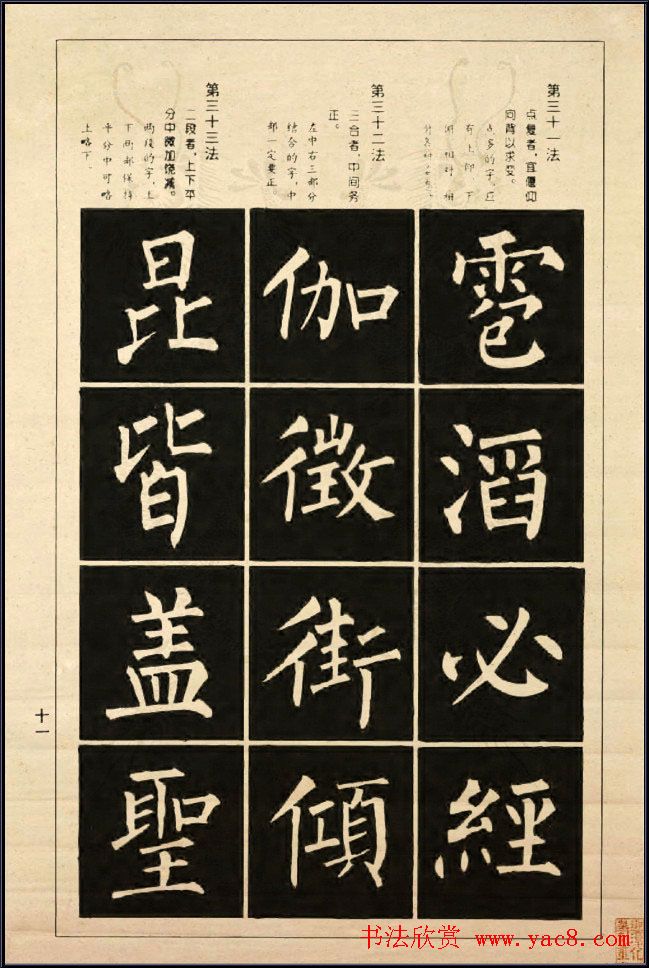 第三十一法
点复者，宜偃仰
向背以求变。
点多的字，应
有上仰、下
俯、相对、相
第三十二法
三合者，中间务
正。
左中右三部分
结合的字，中
部一定要正。
第三十三法
二段者，上下平
分中微加饶减。
两段的字，上
下两部保持
平分中可略
上略下。
雹
滔
必
經
伽
徵
街
傾
昆
皆
盖
聖
十一
书法欣赏 www.yac8.com